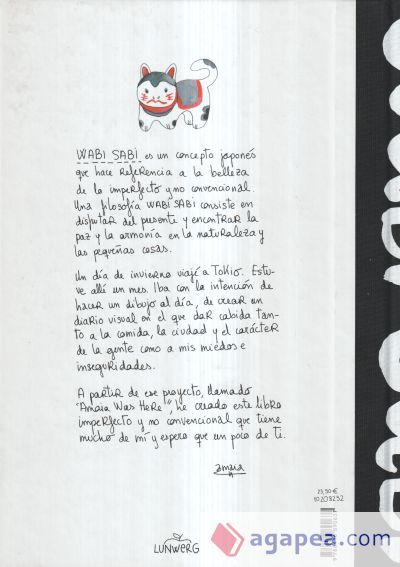 WABI SABI es un concepto japonés
que hace referencia a la belleza
de lo imperfecto y no convencional.
Una filosofía WABI SABI consiste en
disfrutar del presente y encontrar la
paz y la armonía en la naturaleza y
las pequeñas cosas.
Un día de invierno viajé a Tokio. Estu-
ve allí un mes. Iba con la intención de
hacer un dibujo al día, de crear un
diario visual en el que dar cabida tan-
to a la comida, la ciudad y el carácter
de la gente como a mis miedos e
inseguridades.
A partir de ese proyecto, llamado
"Amaia Was Here", he creado este libro
imperfecto y no convencional que tiene
mucho de mí y espero que un poco de ti.
amaia
23,50 €
10208232
LUNWERG
agapea.com